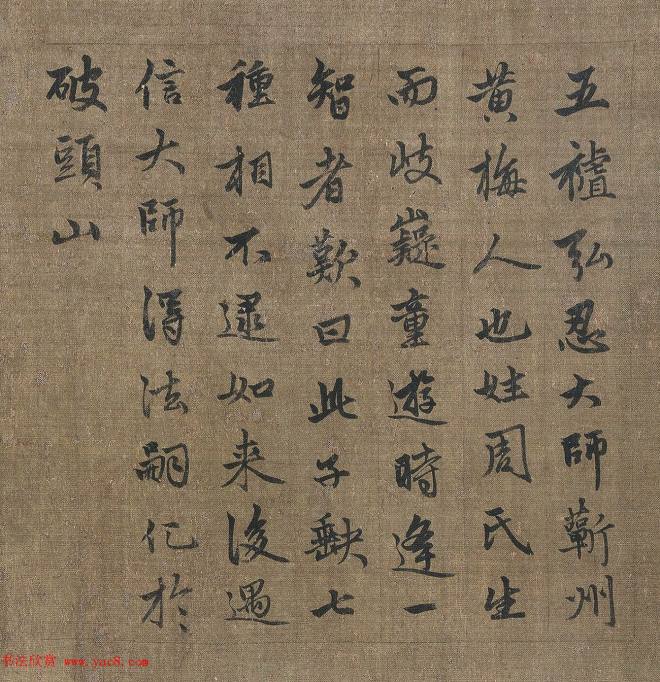 五祖弘忍大師蘄州
黄梅人也姓周氏生
而岐嶷童遊時逢一
智者歎曰此子缺七
種相不逮如来後遇
信大師得法嗣化於
破頭山
书法欣赏 www.yac8.com